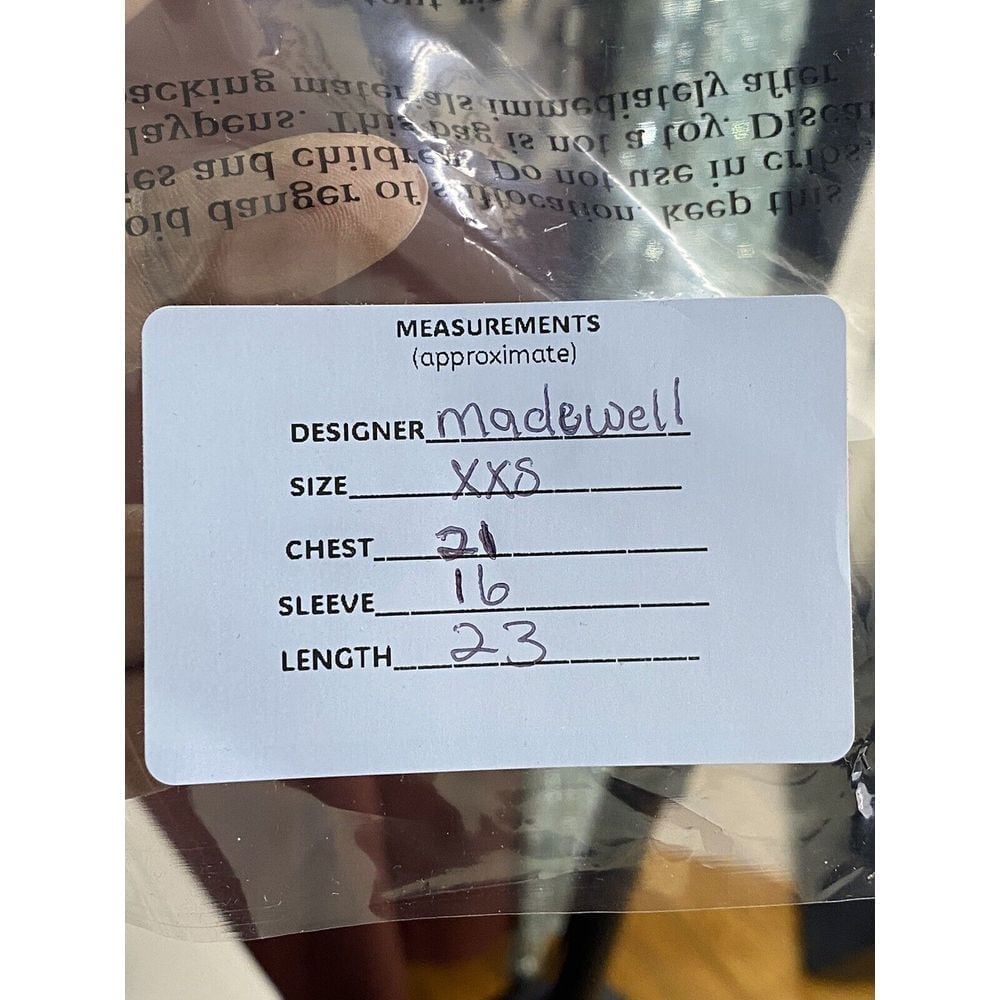 oid danger of suffocation. Keep this
ies and children. Do not use in cribs,
laypens. This bag is not a toy. Discar
acking materials immediately after
MEASUREMENTS
(approximate)
DESIGNER madewell
SIZE XXS
CHEST 21
SLEEVE 16
LENGTH 23